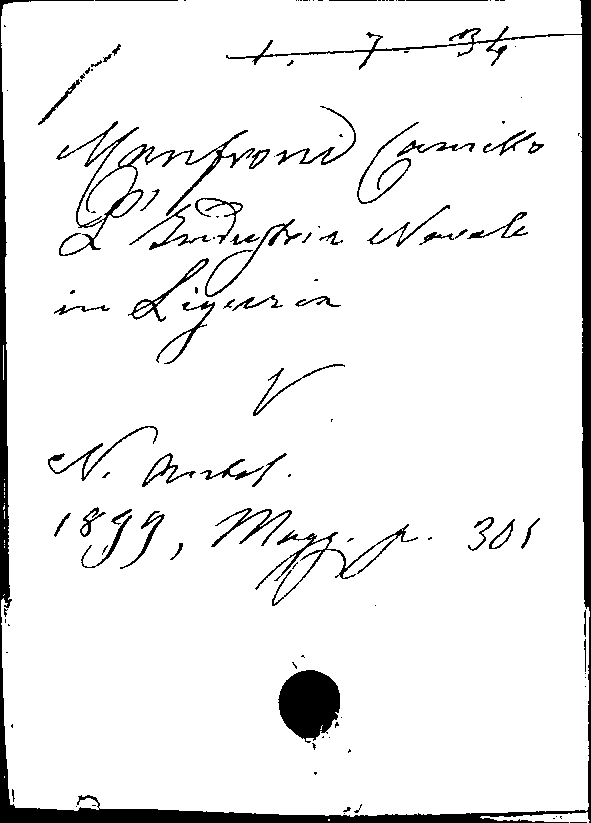 1. 7. 34
Manfroni Camillo
L'Industria Navale
in Liguria
V
N. Antol.
1899, Magg. p. 301